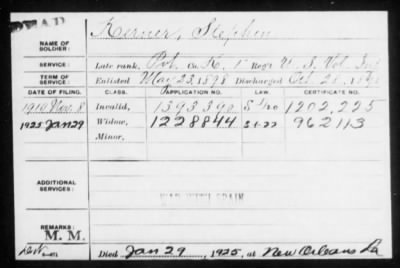 DEAD
Kerner, Stephen
NAME OF
SOLDIER:
SERVICE:
Late rank, Pvt. Co. K, 1 Regt. U. S. Vol. Inf.
TERM OF
SERVICE:
Enlisted May 23, 1898 Discharged Oct. 1898
DATE OF FILING.
CLASS.
APPLICATION NO.
LAW.
CERTIFICATE NO.
1919 Nov. 8
Invalid,
1393390
1202,225
1925 Jan 29
Widow,
1228844
962113
Minor,
ADDITIONAL
SERVICES:
WAR WITH SPAIN
REMARKS:
M. M.
Died Jan 29, 1925, at New Orleans La